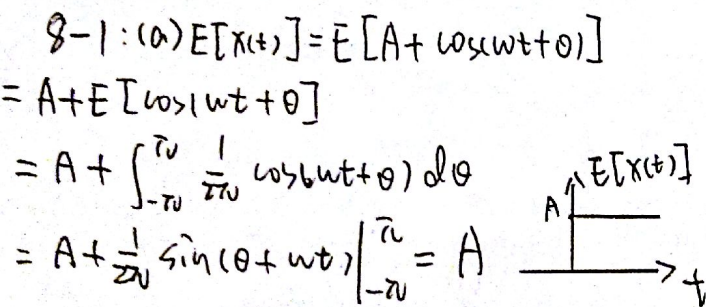 8-1:(a) E[X(t)] = E[A + cos(wt+θ)]
= A + E[cos(wt+θ]
= A + ∫_{-π}^{π} 1/2π cos(wt+θ) dθ
= A + 1/2π sin(θ+wt) |_{-π}^{π} = A
E[X(t)]
A
t